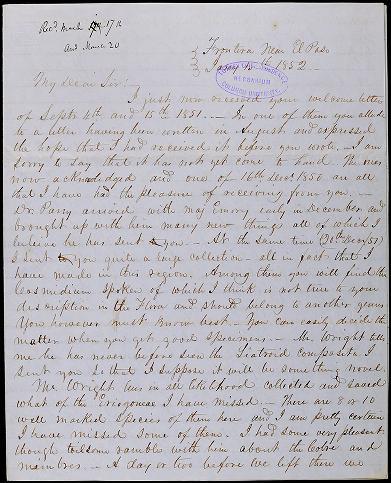 Recd. March 17th
Ansd March 20
Frontera Near El Paso
Jany 15th 1852.
HERBARIUM
My Dear Sir:
I just now received your welcome letter
of Septr 4th and 15th 1851. — In one of them you allude
to a letter having been written in August and expressed
the hope that I had received it before you wrote. — I am
sorry to say that it has not yet come to hand. The ones
now acknowledged and one of 16th Decr. 1850 are all
that I have had the pleasure of receiving from you. —
Dr. Parry arrived with Maj Emory early in December and
brought up with him many new things all of which I
believe he has sent you. — At the same time (30th Decr/51)
I sent to you quite a large collection — all in fact that I
have made in this region. Among them you will find the
Cosmidium spoken of which I think is not true to your
description in the Flora and should belong to another genus
You however must know best. — You can easily decide the
matter when you get good specimens. — Mr. Wright tells
me he has never before seen the Liatroid composita I
sent you so that I suppose it will be something novel.
Mr Wright has in all likelihood collected and saved
what of the Eriogoneae I have missed. — There are 8 or 10
well marked species of them here and I am pretty certain
I have missed some of them. I had some very pleasant
though toilsome rambles with him about the Cobre and
Mimbres. — A day or two before we left there we